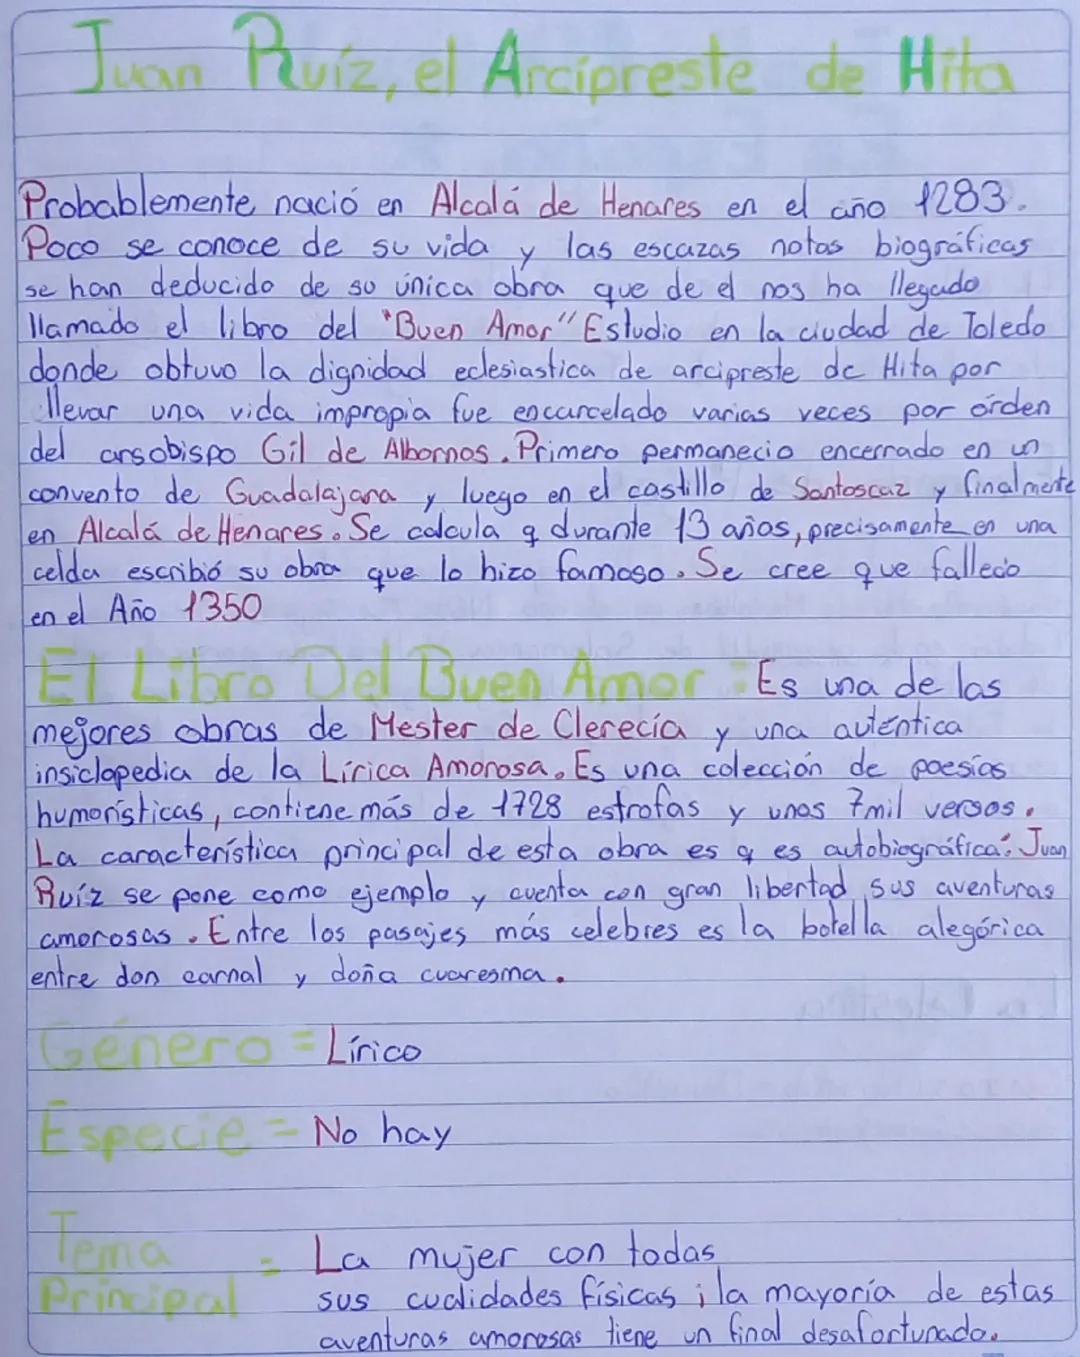 Juan Ruíz, el Arcipreste de Hita
Probablemente nació en Alcalá de Henares en el año 1283.
Poco se conoce de su vida y las escazas notas biográficas
se han deducido de su única obra que de el nos ha llegado
llamado el libro del "Buen Amor" Estudio en la ciudad de Toledo
donde obtuvo la dignidad eclesiastica de arcipreste de Hita por
llevar una vida impropia fue encarcelado varias veces por órden
del arsobispo Gil de Albornos. Primero permanecio encerrado en un
convento de Guadalajara y luego en el castillo de Santoscaz y finalmente
en Alcalá de Henares. Se calcula q durante 13 años, precisamente en una
celda escribió su obra que lo hizo famoso. Se cree que fallecio
en el Año 1350
El Libro Del Buen Amor = Es una de las
mejores obras de Mester de Clerecía y una auténtica
insiclopedia de la Lírica Amorosa. Es una colección de poesías
humorísticas, contiene más de 1728 estrofas y unos 7mil versos.
La característica principal de esta obra es q es autobiográfica: Juan
Ruíz se pone como ejemplo y cuenta con gran libertad sus aventuras
amorosas. Entre los pasajes más celebres es la botella alegórica
entre don carnal y doña cuaresma.
Género = Lírico
Especie = No hay
Tema Principal = La mujer con todas
sus cualidades físicas ; la mayoría de estas
aventuras amorosas tiene un final desafortunado.